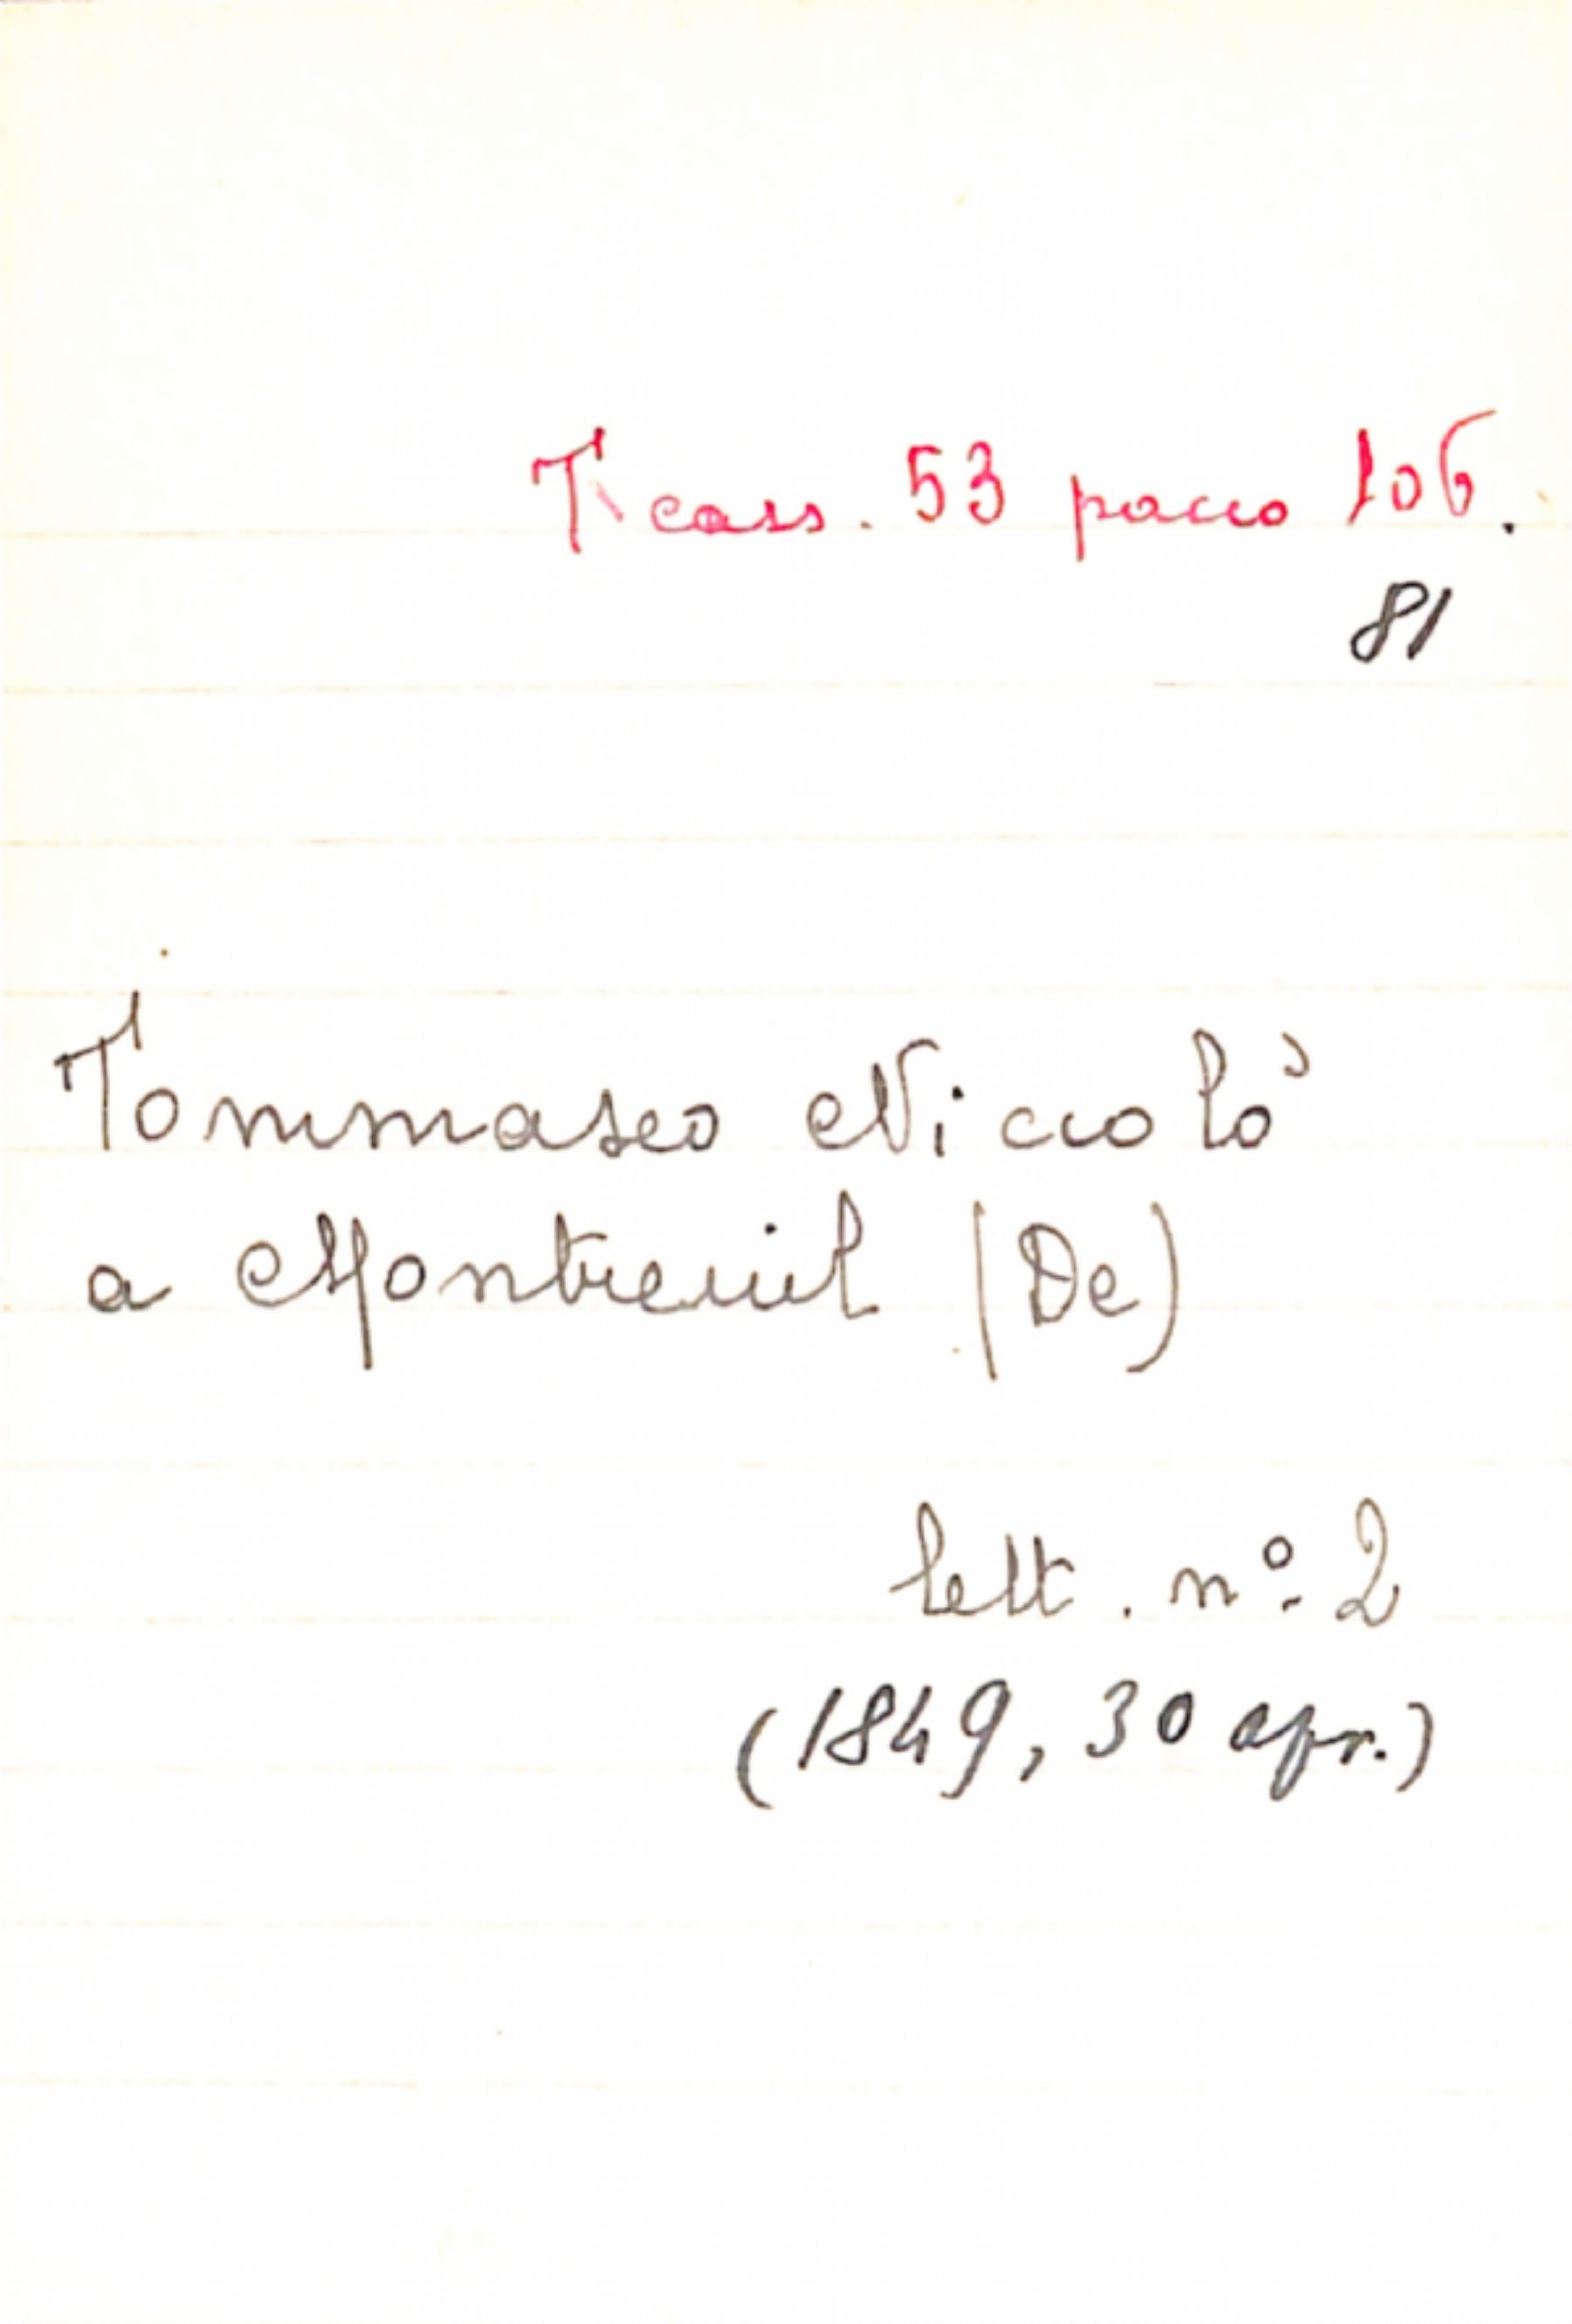 T cass. 53 pacco 106.
81
Tommaseo Niccolò
a Montreuil (De)
lett. nº 2
(1849, 30 apr.)